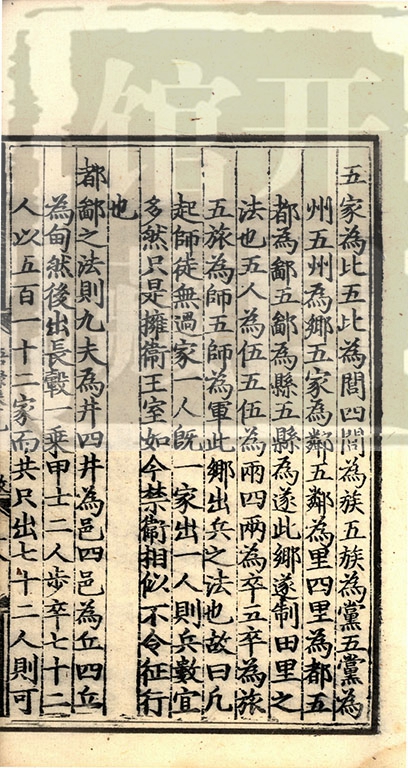 五家為比五比為閭四閭為族五族為黨五黨為
州五州為鄉五家為鄰五鄰為里四里為都五
都為鄙五鄙為縣五縣為遂此鄉遂制田里之
法也五人為伍五伍為兩四兩為卒五卒為旅
五旅為師五師為軍此鄉出兵之法也故曰凡
起師徒無過家一人既一家出一人則兵數宜
多然只是擁衛王室如今禁衛相似不令征行
也
都鄙之法則九夫為井四井為邑四邑為丘四丘
為甸然後出長轂一乘甲士二人步卒七十二
人以五百一十二家而共只出七十二人則可